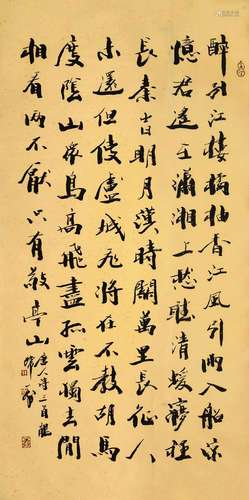 醉別江樓橘柚香江風引雨入船涼
憶君遥在瀟湘上愁聽清猿夢裡
長秦時明月漢時關萬里長征人
未還但使盧城飛將在不教胡馬
度陰山眾鳥高飛盡孤雲獨去閒
相看兩不厭只有敬亭山
唐人詩三首